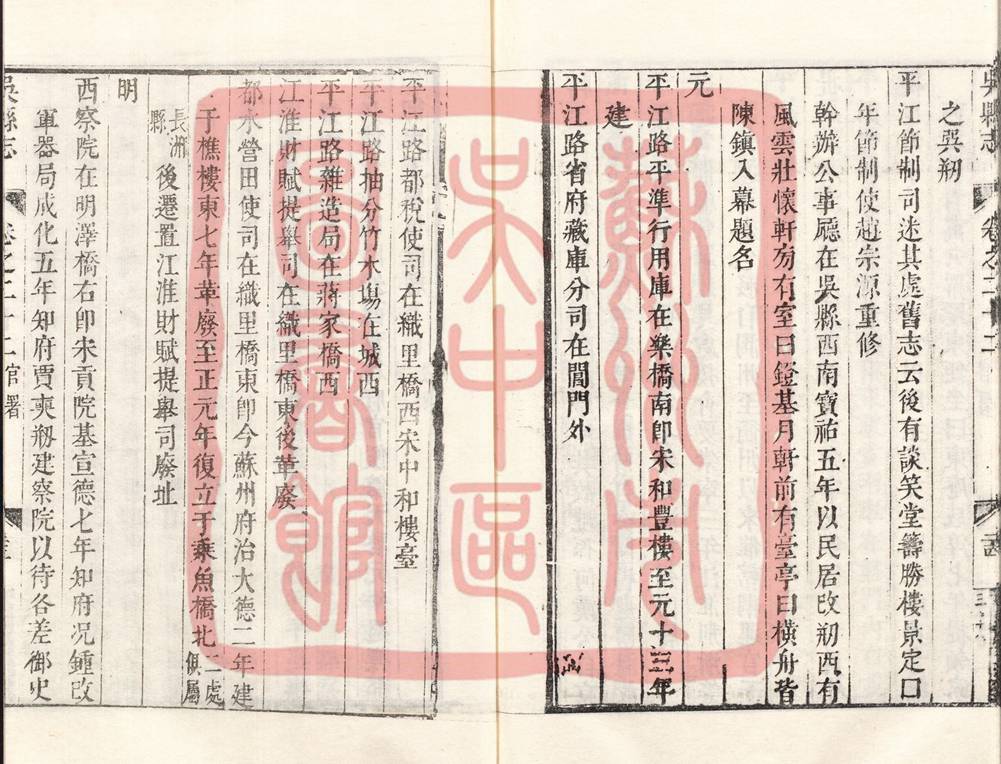 吳縣志
之吳剏
平江節制司述其處舊志云後有談笑堂籌勝樓景定口
年節制使趙宗源重修
幹辦公事廳在吳縣西南寶祐五年以民居改剏西有
風雲壯懷軒旁有室曰鐙基月軒前有臺亭曰橫舟皆
陳鎮入幕題名
元
平江路平準行用庫在樂橋南卽宋和豐樓至元十三年
建
平江路省府藏庫分司在閶門外
平江路都稅使司在織里橋西宋中和樓臺
平江路抽分竹木場在城西
平江路雜造局在蔣家橋西
江淮財賦提舉司在織里橋東後革廢
都水營田使司在織里橋東卽今蘇州府治大德二年建
于樵樓東七年革廢至正元年復立于乘魚橋北二處俱屬
長洲縣後遷置江淮財賦提舉司廢址
明
西察院在明澤橋右卽宋貢院基宣德七年知府况鍾改
軍器局成化五年知府賈奭剏建察院以待各差御史
吳縣志 卷之二十二 官署
蘇州市吳中區圖書館